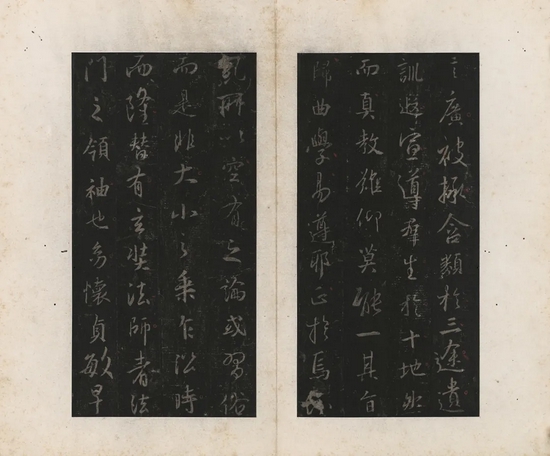 言廣被拯含類於三途遺
訓遐宣導群生於十地然
而真教難仰莫能一其旨
歸曲學易遵邪正於焉紛
糺所以空有之論或習俗
而是非大小之乘乍沿時
而隆替有玄奘法師者法
門之領袖也幼懷貞敏早